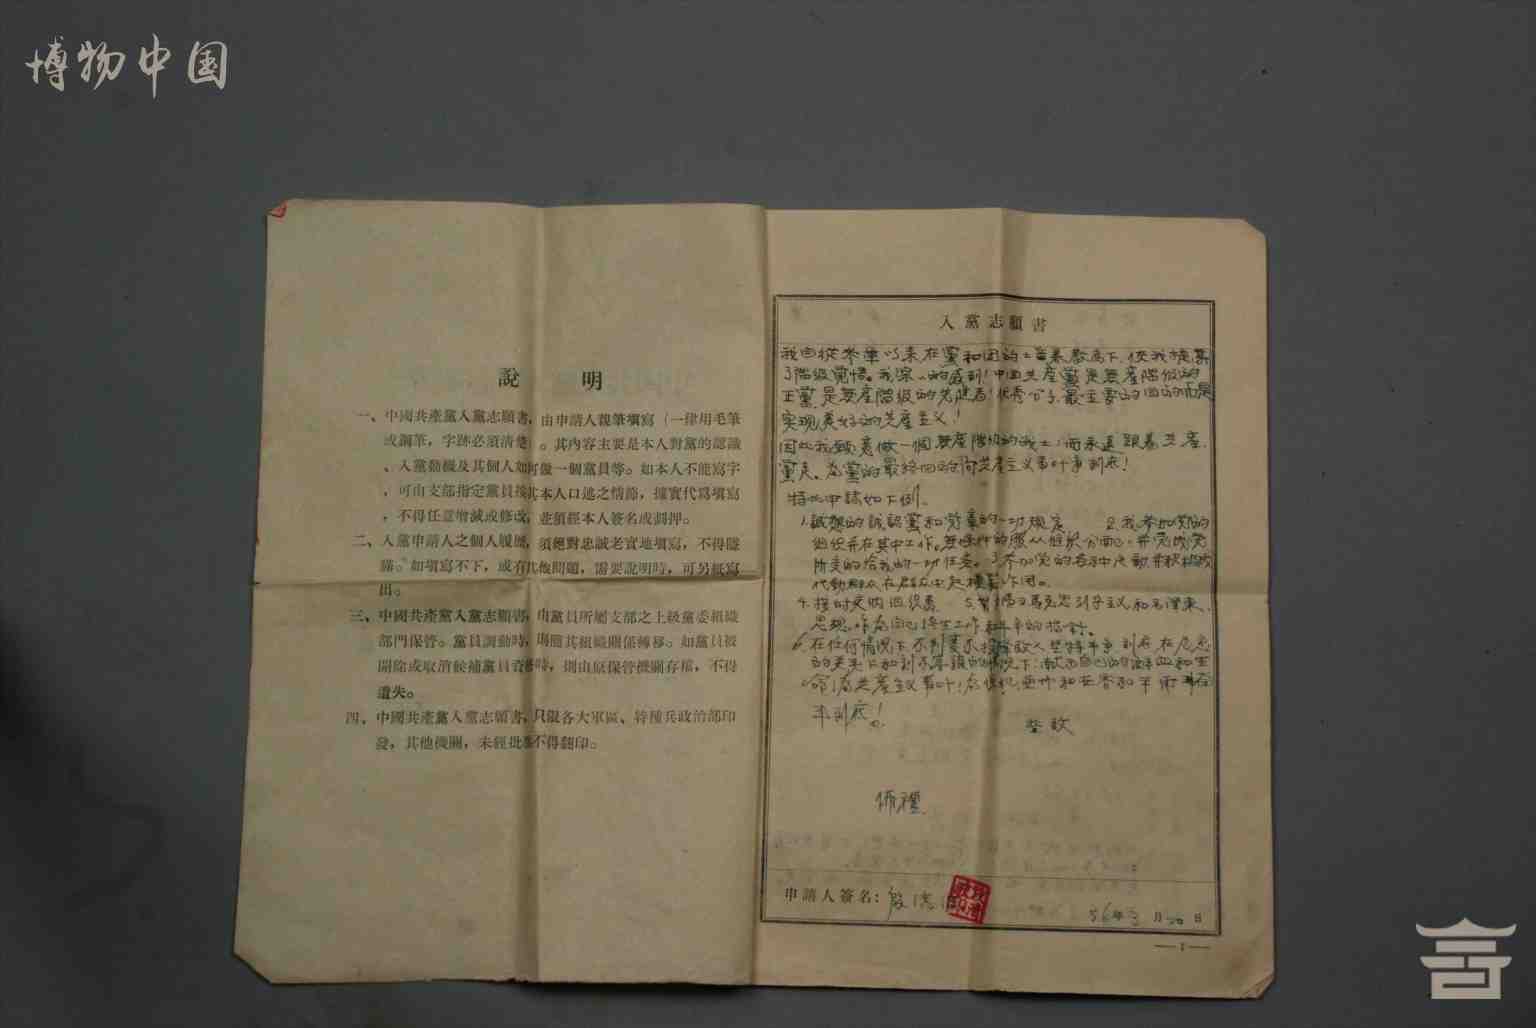 博物中国
說明
一、中國共產黨入黨志願書，由申請人親筆填寫（一律用毛筆
或鋼筆，字跡必須清楚）。其內容主要是本人對黨的認識
、入黨動機及其個人如何做一個黨員等。如本人不能寫字
，可由支部指定黨員按其本人口述之情節，據實代爲填寫
，不得任意增減或修改，並須經本人簽名或劃押。
二、入黨申請人之個人履歷，須絕對忠誠老實地填寫，不得隱
瞞。如填寫不下，或有其他問題，需要說明時，可另紙寫
出。
三、中國共產黨入黨志願書，由黨員所屬支部之上級黨委組織
部門保管。黨員調動時，則隨其組織關係轉移。如黨員被
開除或取消候補黨員資格時，則由原保管機關存檔，不得
遺失。
四、中國共產黨入黨志願書，只限各大軍區、特種兵政治部印
發，其他機關，未經批准不得翻印。
入黨志願書
我自從參軍以來在黨和团的
了階級覚悟。我深的感到！中国共產黨是無產階級的
正黨是無產階級的先進者！優秀分子 最主要的目的而是
实現美好的共產主义！
因此我願意做一個無產階級的战士！而永遠跟着共產
黨走。為黨的最終目的向共產主义事叶干到底！
特此申請如下例。
1.誠懇的誠認黨和党章的一切規定 2.我参加党的
組织并在其中工作。無条件的服从組织分配。并完成党
所交的给我的一切任务。3.参加党的各种活動并积极
代動群众在群众中起模范作用。
4.按时交纳 5.学習马克思列宁主义和毛澤東
思想。作為自己
6.在任何情况下
命！為共產主义事叶！為保
干到底！
此致
敬禮
申請人簽名：殷德
56年3月20日
— 1 —